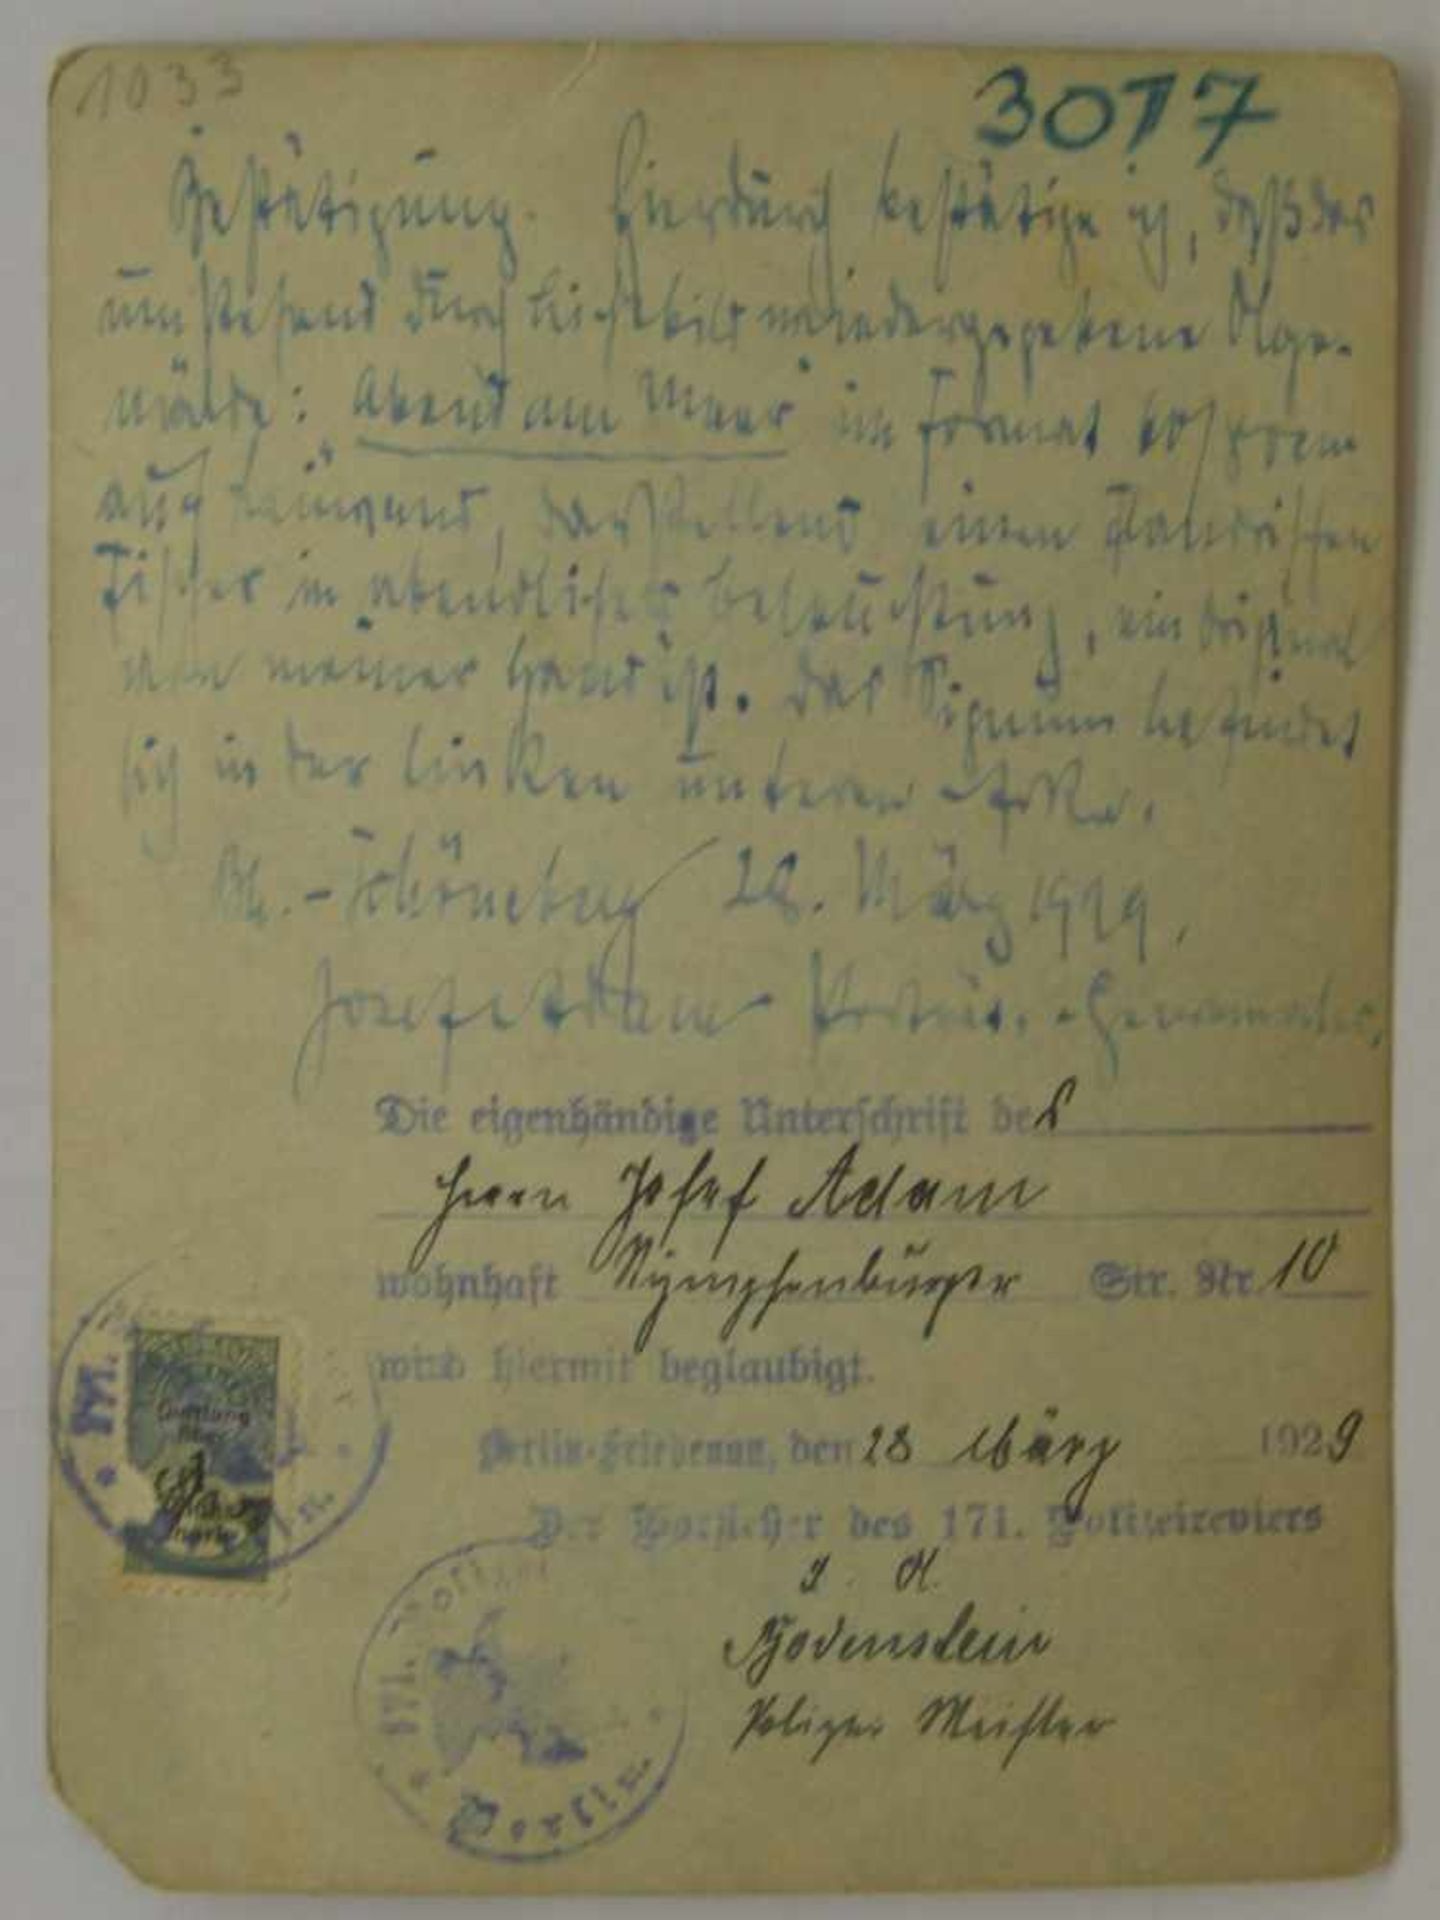 1033
3077
Bestätigung. Hierdurch bestätige ich, daß das
umstehend durch Lichtbild wiedergegebene Ölge-
mälde: "Abend am Meer" im Format
auf Leinwand, darstellend einen flandrischen
Fischer in abendlicher Beleuchtung, ein Original
von meiner Hand ist. Das Signum befindet
sich in der linken unteren Ecke.
Bln.-Schöneberg 28. März 1929.
Josef Adam
Die eigenhändige Unterschrift des
Herrn Josef Adam
wohnhaft Nymphenburger Str. Nr. 10
wird hiermit beglaubigt.
Berlin-Friedenau, den 28 März 1929
Der Vorsteher des 171. Polizeireviers
Bodenstein
Polizei Meister
171.
Berlin.